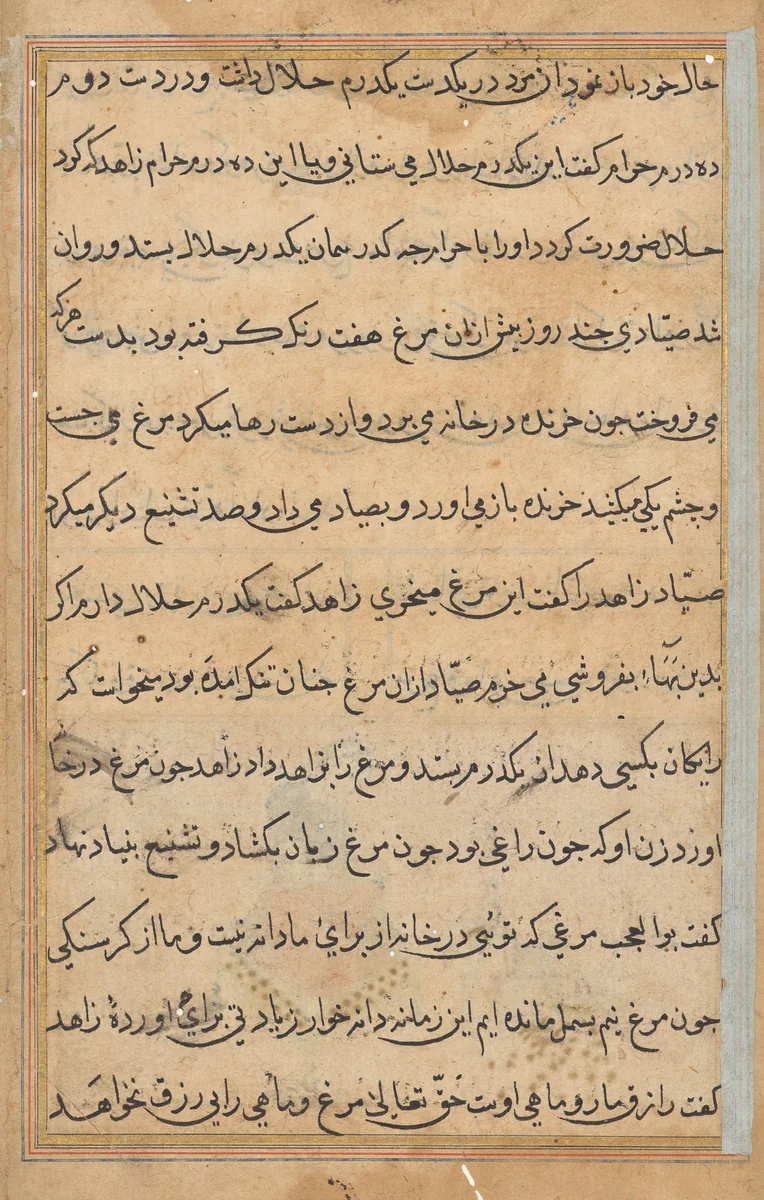 حال خود باز نمود ان مرد در یکدست یکدرم حلال داشت و در دست دوم
ده درم حرام کفت این یکدرم حلال می ستانی و یا این ده درم حرام زاهد که کرد
حلال ضرورت کردد او را با حرام جه کدر همان یکدرم حلال بستد و روان
شد صیّادی جند روز بیش ازان مرغ هفت رنک کرفته بود بدست هرکه
می فروخت جون خرنده در خانه می برد و از دست رها میکرد مرغ می جست
و جشم یکی میکشد خرنده باز می اورد و بصیاد می داد و صد تشنیع دیکر میکرد
صیّاد زاهد را کفت این مرغ میخری زاهد کفت یکدرم حلال دارم اکر
بدین بَهَاء بفروشی می خرم صیّاد ازان مرغ جنان تنک امَدَه بود میخواست که
رایکان بکسی دهد ان یکدرم بستد و مرغ را بزاهد داد زاهد جون مرغ در خا
اورد زن او که جون زاغی بود جون مرغ زبان بکشاد و تشنیع بنیاد نهاد
کفت بوالعجب مرغی که توئیی در خانه از برائ ما دانه نیست و ما از کرسنکی
جون مرغ نیم بسمل مانده ایم این زمانه دانه خوار زیادتی برای اوردهٔ زاهد
کفت رازق مار و ماهی اوست حَقّ تعالیٰ مرغ و ماهی را بی رزق نخواهَد